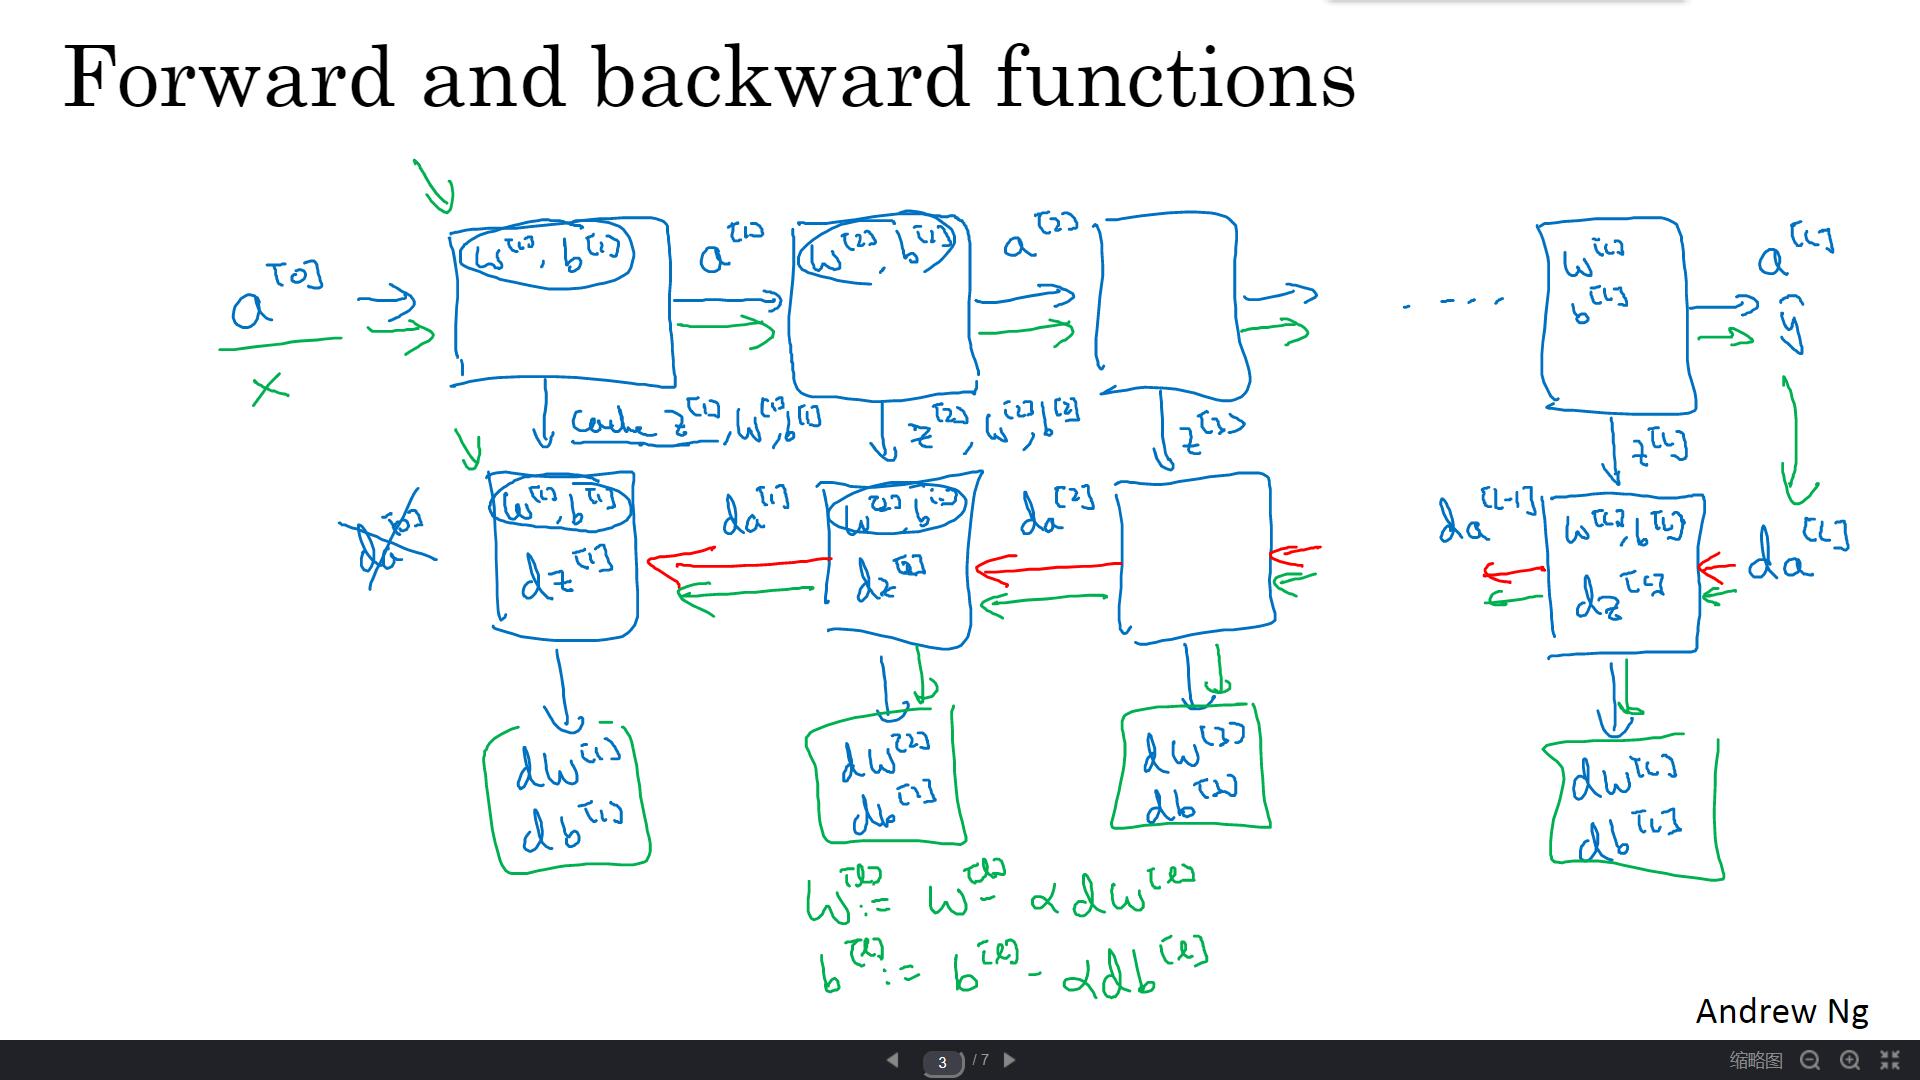 Forward and backward functions
a^[0] w^[1], b^[1] a^[1] w^[2], b^[2] a^[2] .... w^[L] b^[L] a^[L] ŷ
x
cache z^[1], w^[1], b^[1] z^[2], w^[2], b^[2] z^[3] z^[L]
da^[0] w^[1], b^[1] da^[1] w^[2], b^[2] da^[2] da^[L-1] w^[L], b^[L] da^[L]
dz^[1] dz^[2] dz^[L]
dw^[1] dw^[2] dw^[3] dw^[L]
db^[1] db^[2] db^[3] db^[L]
w^[l] := w^[l] - αdw^[l]
b^[l] := b^[l] - αdb^[l]
Andrew Ng
3 / 7 缩略图